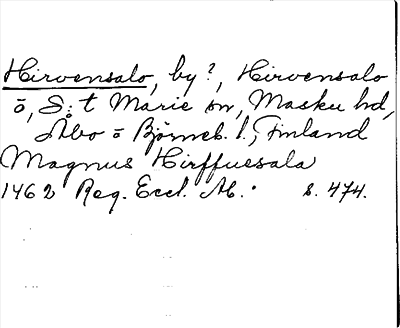 Hirvensalo, by?, Hirvensalo
ö, S:t Marie sn, Masku hd,
Åbo o Björneb. l., Finland
Magnus Hirffuesala
1462 Reg. Eccl. Ab. s. 474.